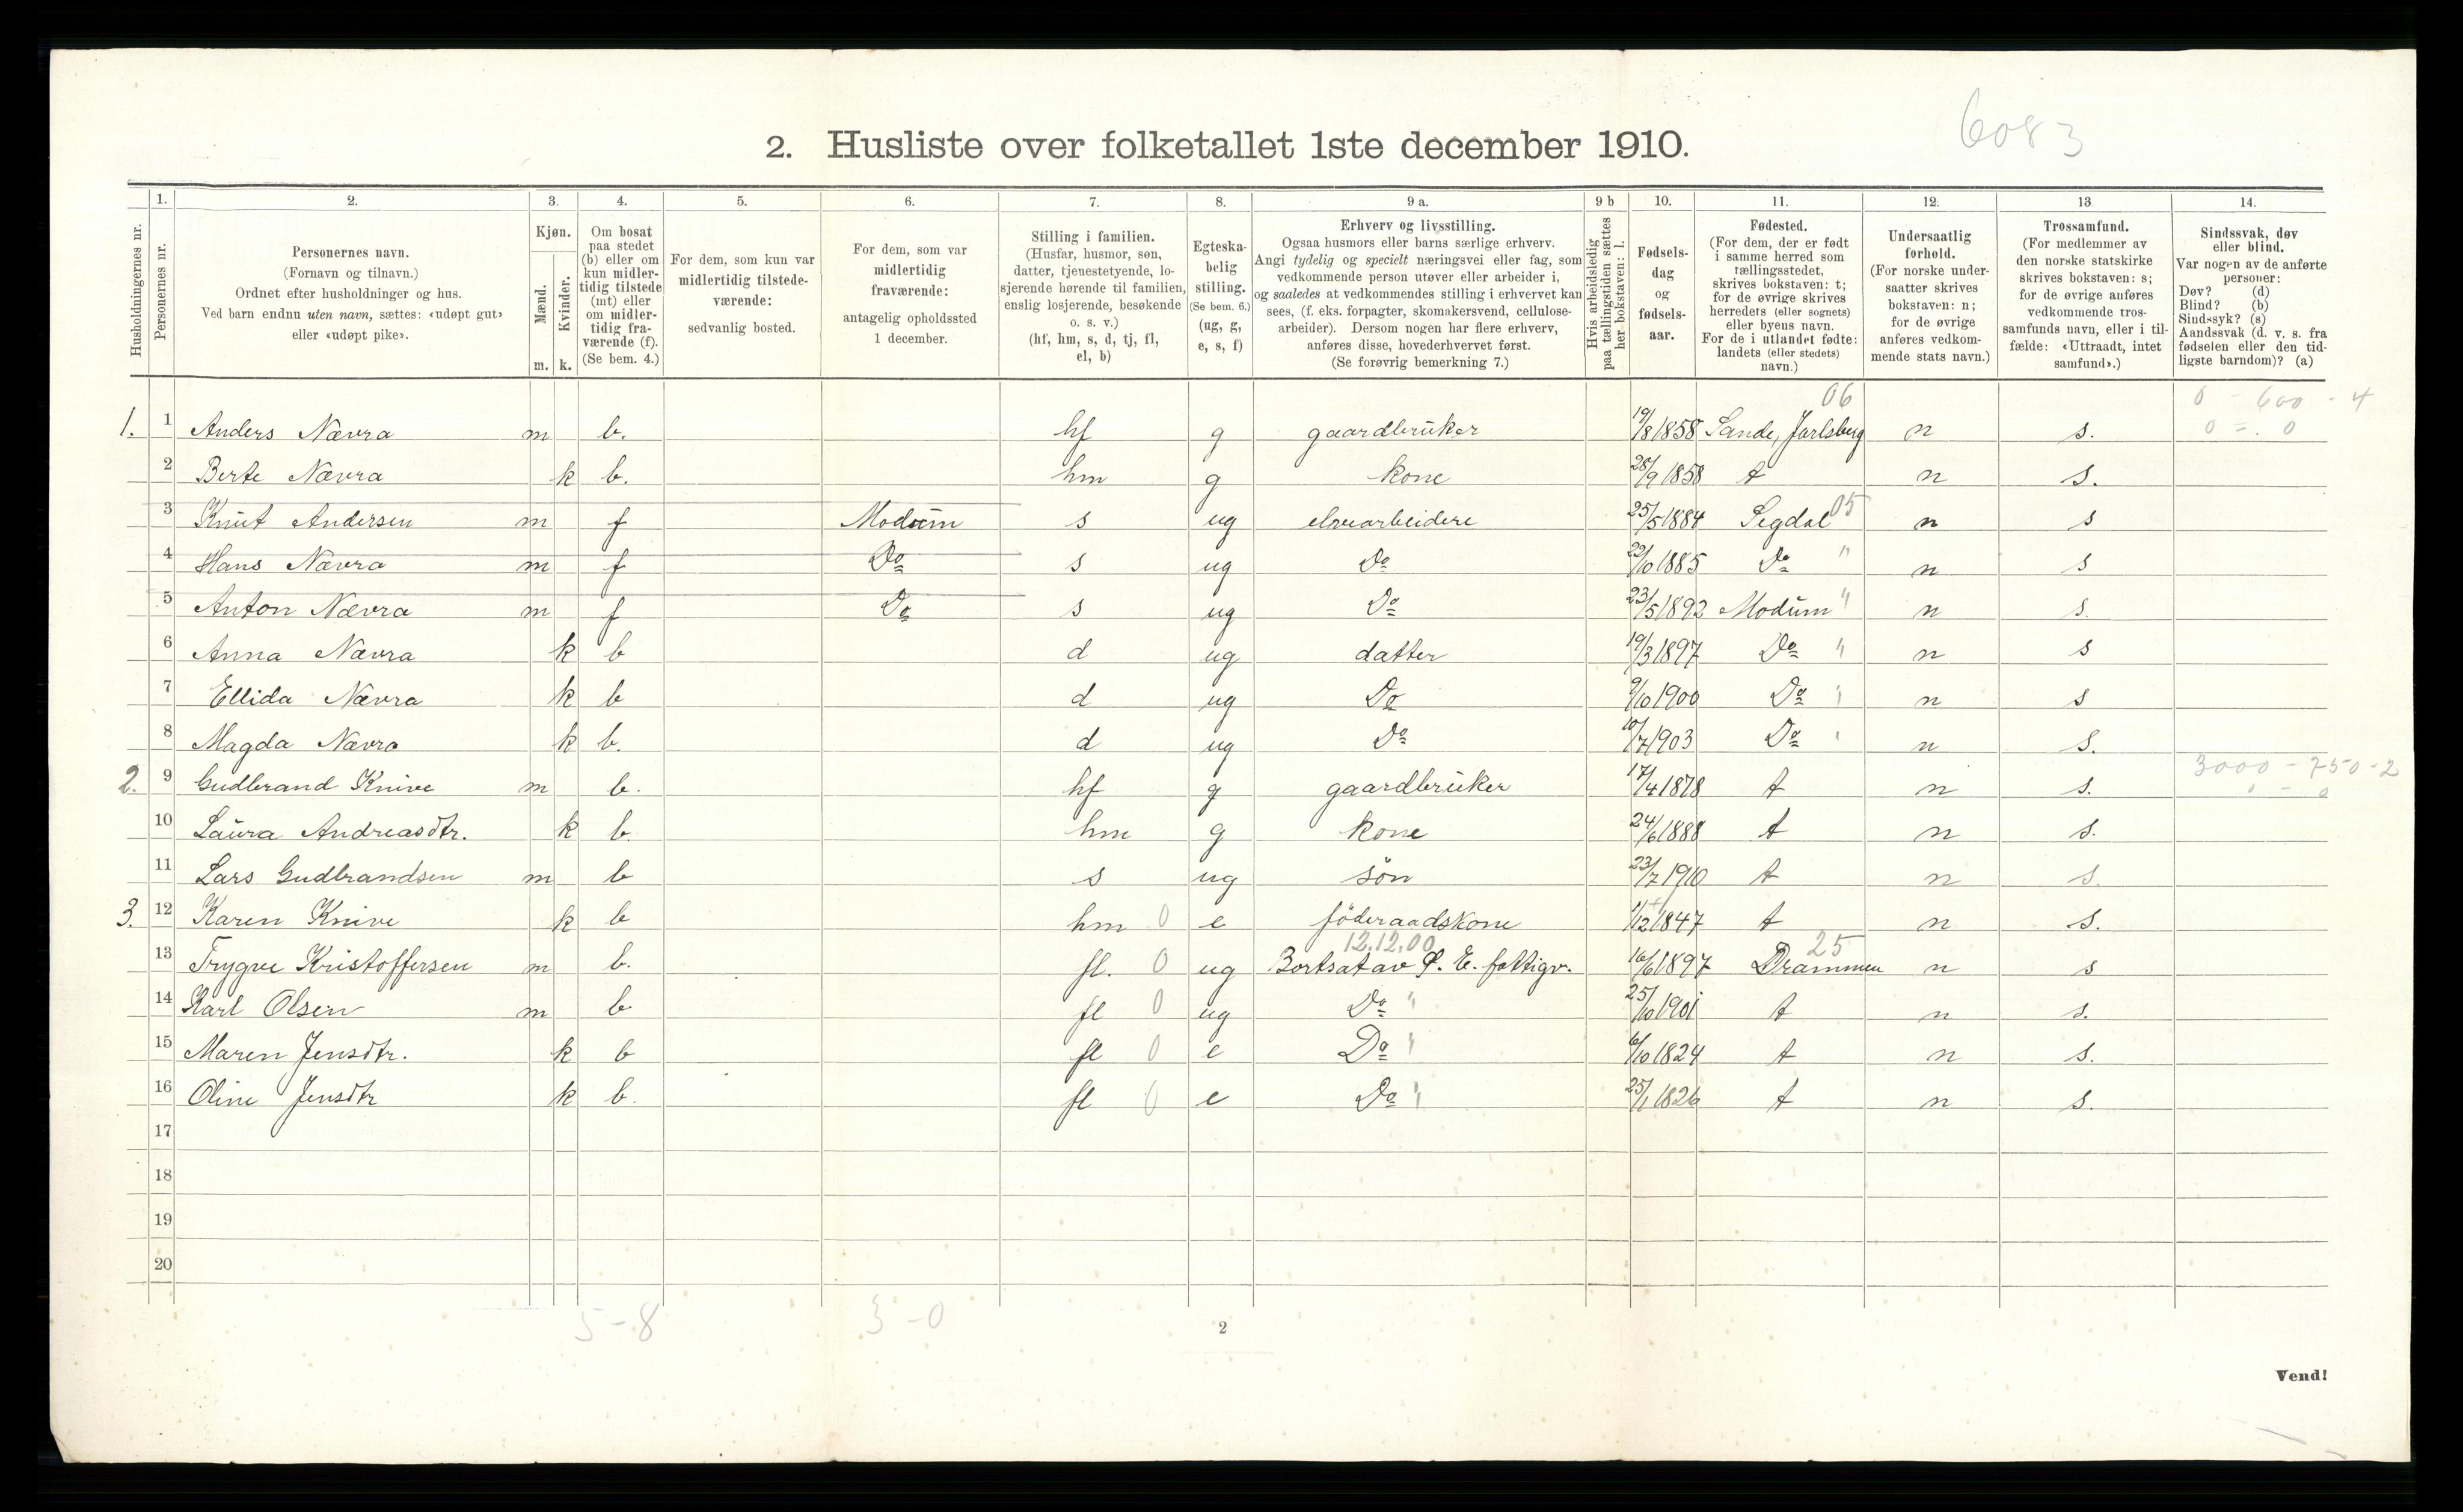 6083
2. Husliste over folketallet 1ste december 1910.
Husholdningernes nr.
1. Personernes nr.
2. Personernes navn.
(Fornavn og tilnavn.)
Ordnet efter husholdninger og hus.
Ved barn endnu uten navn, sættes: «udøpt gut»
eller «udøpt pike».
3. Kjøn.
Mænd. m.
Kvinder. k.
4. Om bosat
paa stedet
(b) eller om
kun midler-
tidig tilstede
(mt) eller
om midler-
tidig fra-
værende (f).
(Se bem. 4.)
5. For dem, som kun var
midlertidig tilstede-
værende:
sedvanlig bosted.
6. For dem, som var
midlertidig
fraværende:
antagelig opholdssted
1 december.
7. Stilling i familien.
(Husfar, husmor, søn,
datter, tjenestetyende, lo-
sjerende hørende til familien,
enslig losjerende, besøkende
o. s. v.)
(hf, hm, s, d, tj, fl,
el, b)
8. Egteska-
belig
stilling.
(Se bem. 6.)
(ug, g,
e, s, f)
9 a. Erhverv og livsstilling.
Ogsaa husmors eller barns særlige erhverv.
Angi tydelig og specielt næringsvei eller fag, som
vedkommende person utøver eller arbeider i,
og saaledes at vedkommendes stilling i erhvervet kan
sees, (f. eks. forpagter, skomakersvend, cellulose-
arbeider). Dersom nogen har flere erhverv,
anføres disse, hovederhvervet først.
(Se forøvrig bemerkning 7.)
9 b Hvis arbeidsledig
paa tællingstiden sættes
her bokstaven: l.
10. Fødsels-
dag
og
fødsels-
aar.
11. Fødested.
(For dem, der er født
i samme herred som
tællingsstedet,
skrives bokstaven: t;
for de øvrige skrives
herredets (eller sognets)
eller byens navn.
For de i utlandet fødte:
landets (eller stedets)
navn.)
12. Undersaatlig
forhold.
(For norske under-
saatter skrives
bokstaven: n;
for de øvrige
anføres vedkom-
mende stats navn.)
13 Trossamfund.
(For medlemmer av
den norske statskirke
skrives bokstaven: s;
for de øvrige anføres
vedkommende tros-
samfunds navn, eller i til-
fælde: «Uttraadt, intet
samfund».)
14. Sindssvak, døv
eller blind.
Var nogen av de anførte
personer:
Døv? (d)
Blind? (b)
Sindssyk? (s)
Aandssvak (d. v. s. fra
fødselen eller den tid-
ligste barndom)? (a)
06 0 - 600 - 4
1. 1 Anders Nævra m b. hf g gaardbruker 19/8 1858 Sande, Jarlsberg n s. 0 - 0
2 Berte Nævra k b. hm g kone 28/9 1858 t n s.
3 Knut Andersen m f Modum s ug elvearbeidere 25/5 1884 Segdal 05 n s
4 Hans Nævra m f Do s ug Do 22/10 1885 Do " n s
5 Anton Nævra m f Do s ug Do 23/5 1892 Modum " n s.
6 Anna Nævra k b d ug datter 19/3 1897 Do " n s
7 Ellida Nævra k b d ug Do 9/10 1900 Do " n s
8 Magda Nævra k b. d ug Do 10/7 1903 Do " n s.
3000 - 750 - 2
2. 9 Gudbrand Knive m b. hf g gaardbruker 17/4 1878 t n s. 0 - 0
10 Laura Andreasdtr. k b. hm g kone 24/6 1888 t n s.
11 Lars Gudbrandsen m b s ug søn 23/7 1910 t n s.
3. 12 Karen Knive k b hm 0 e föderaadskone 1/12 1847 t n s.
12.12.00 25
13 Trygve Kristoffersen m b. fl. 0 ug Bortsat av D. E. fattigv. 16/6 1897 Drammen n s
14 Karl Olsen m b fl 0 ug Do " 25/10 1901 t n s.
15 Maren Jensdtr. k b fl 0 e Do " 6/10 1824 t n s.
16 Oline Jensdtr k b. fl 0 e Do " 25/1 1826 t n s.
17
18
19
20
5-8 3-0
2
Vend!